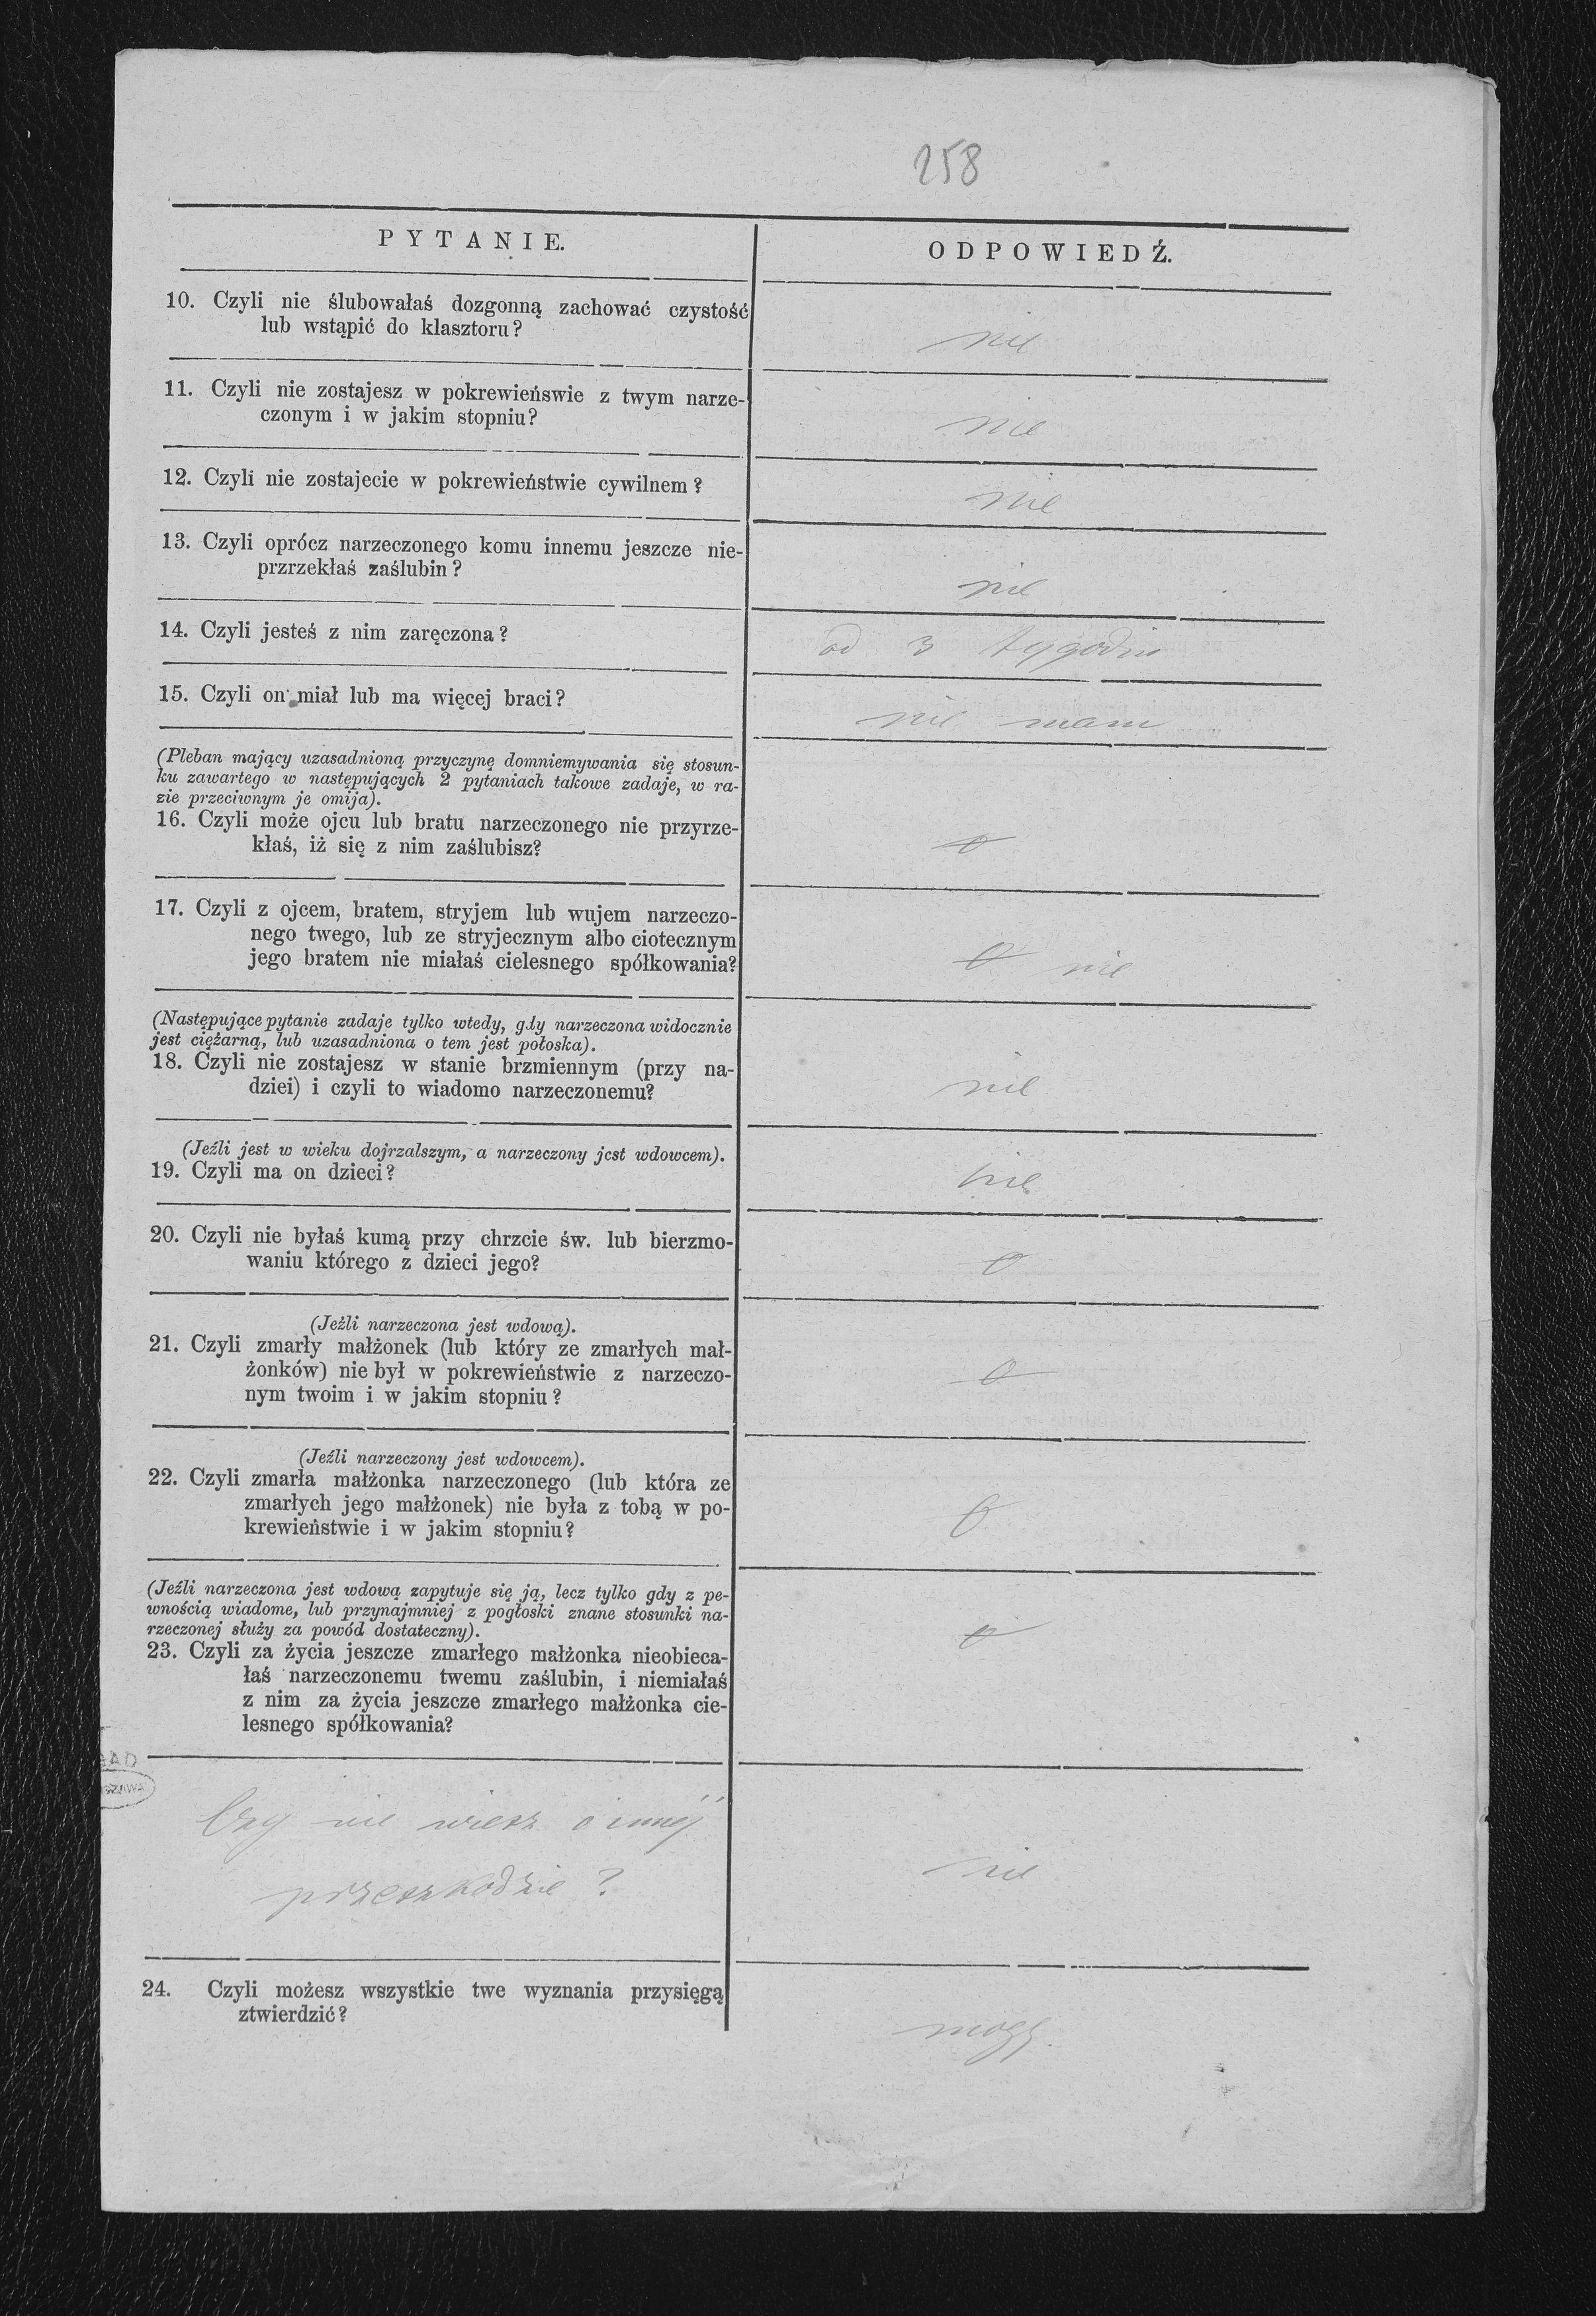 258
PYTANIE.
ODPOWIEDŹ.
10. Czyli nie ślubowałaś dozgonną zachować czystość
lub wstąpić do klasztoru?
nie
11. Czyli nie zostajesz w pokrewieńswie z twym narze-
czonym i w jakim stopniu?
nie
12. Czyli nie zostajecie w pokrewieństwie cywilnem?
nie
13. Czyli oprócz narzeczonego komu innemu jeszcze nie-
przrzekłaś zaślubin?
nie
14. Czyli jesteś z nim zaręczona?
od 3 tygodni
15. Czyli on miał lub ma więcej braci?
nie mam
(Pleban mający uzasadnioną przyczynę domniemywania się stosun-
ku zawartego w następujących 2 pytaniach takowe zadaje, w ra-
zie przeciwnym je omija).
16. Czyli może ojcu lub bratu narzeczonego nie przyrze-
kłaś, iż się z nim zaślubisz?
o
17. Czyli z ojcem, bratem, stryjem lub wujem narzeczo-
nego twego, lub ze stryjecznym albo ciotecznym
jego bratem nie miałaś cielesnego spółkowania?
o nie
(Następujące pytanie zadaje tylko wtedy, gdy narzeczona widocznie
jest ciężarną, lub uzasadniona o tem jest połoska).
18. Czyli nie zostajesz w stanie brzmiennym (przy na-
dziei) i czyli to wiadomo narzeczonemu?
nie
(Jeźli jest w wieku dojrzalszym, a narzeczony jest wdowcem).
19. Czyli ma on dzieci?
nie
20. Czyli nie byłaś kumą przy chrzcie św. lub bierzmo-
waniu którego z dzieci jego?
o
(Jeźli narzeczona jest wdową).
21. Czyli zmarły małżonek (lub który ze zmarłych mał-
żonków) nie był w pokrewieństwie z narzeczo-
nym twoim i w jakim stopniu?
o
(Jeźli narzeczony jest wdowcem).
22. Czyli zmarła małżonka narzeczonego (lub która ze
zmarłych jego małżonek) nie była z tobą w po-
krewieństwie i w jakim stopniu?
o
(Jeźli narzeczona jest wdową zapytuje się ją, lecz tylko gdy z pe-
wnością wiadome, lub przynajmniej z pogłoski znane stosunki na-
rzeczonej służy za powód dostateczny).
23. Czyli za życia jeszcze zmarłego małżonka nieobieca-
łaś narzeczonemu twemu zaślubin, i niemiałaś
z nim za życia jeszcze zmarłego małżonka cie-
lesnego spółkowania?
o
Czy nie wiesz o innéj
przeszkodzie?
nie
24. Czyli możesz wszystkie twe wyznania przysięgą
ztwierdzić?
mogę.